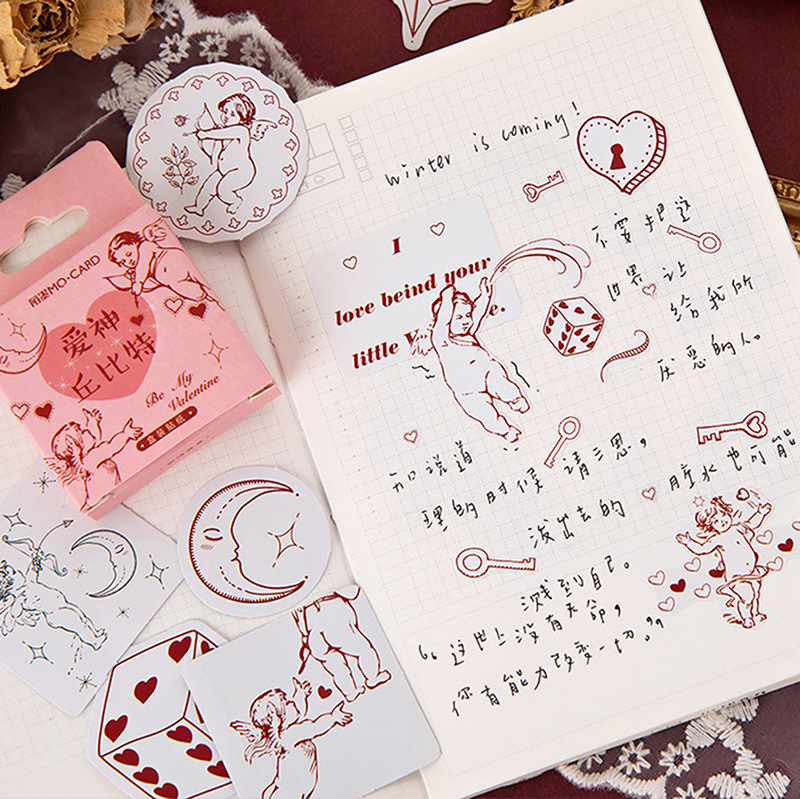 陌墨MO·CARD
爱神
丘比特
Be My
Valentine
盒装贴纸
winter is coming!
I
love beind your
little V e.
不要把这
世界 让
给我所
厌恶的人。
和说道
理的时候 请三思,
泼出去的 脏水也可能
溅到自己。
“这世上没有天命,
你有能力改变一切。”